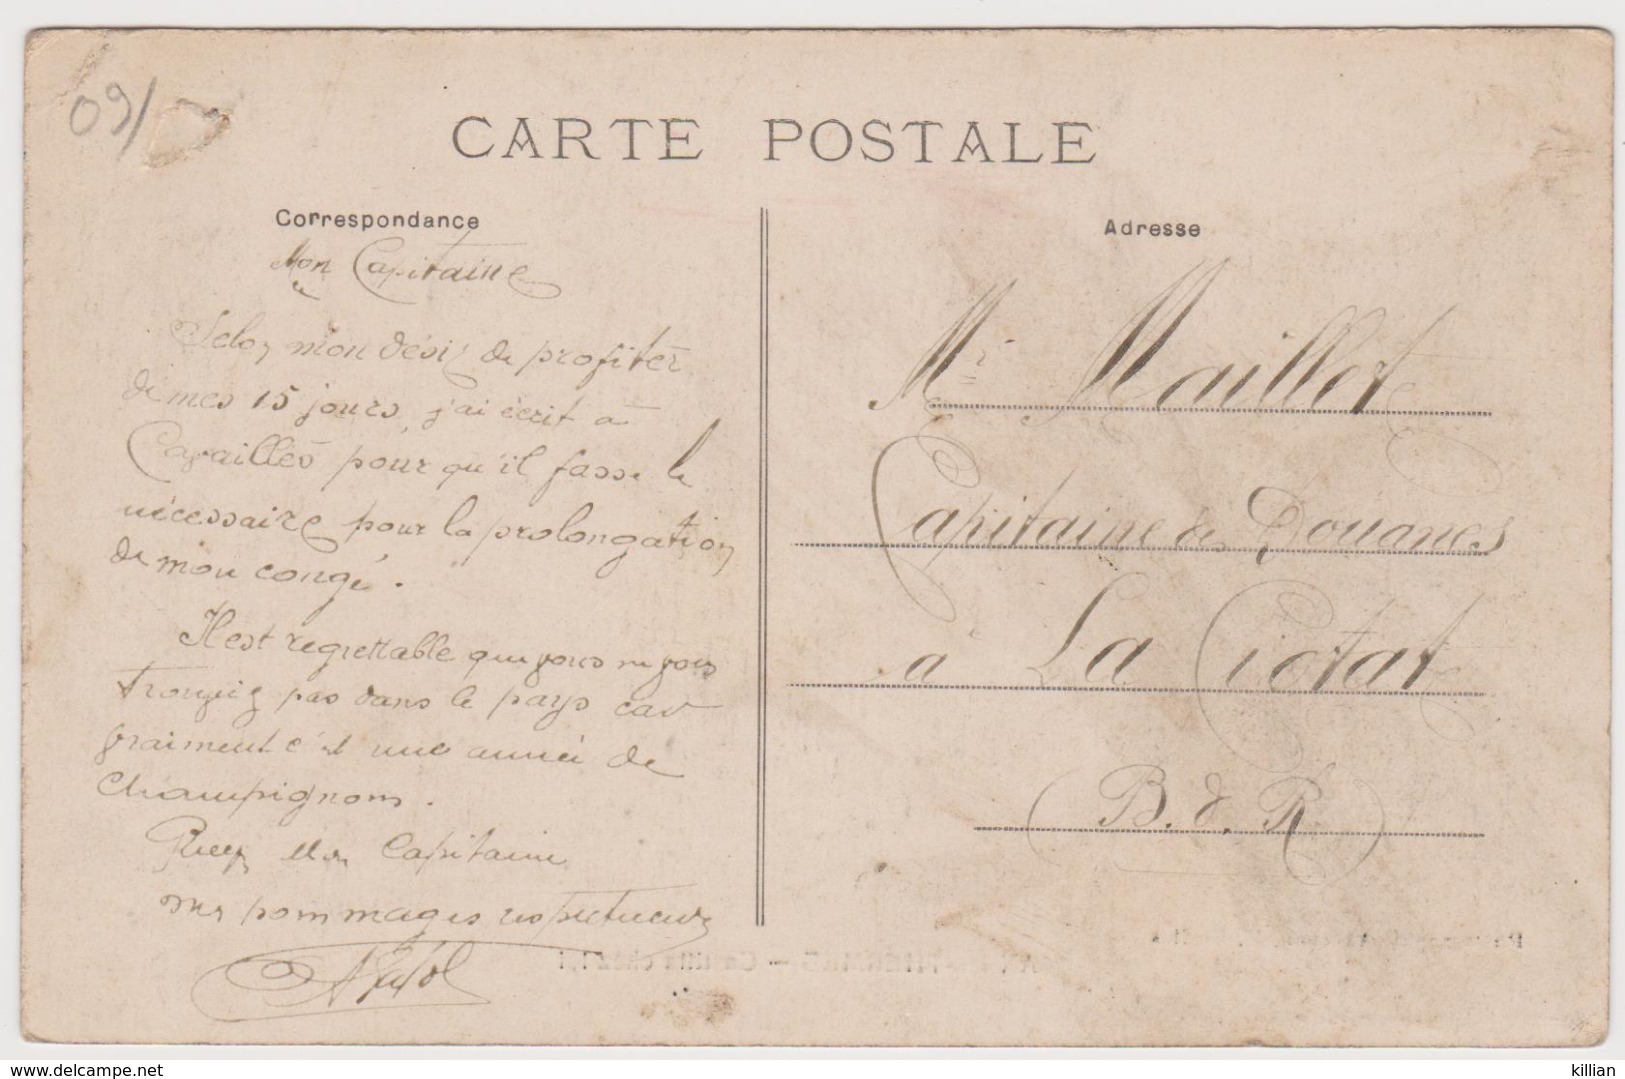 09/
CARTE POSTALE
Correspondance
Mon Capitaine
Selon mon désir de profiter
de mes 15 jours, j'ai écrit à
Cavaillès pour qu'il fasse le
nécessaire pour la prolongation
de mon congé.
Il est regrettable que vous ne vous
trouviez pas dans le pays car
vraiment c'est une année de
Champignons.
Mon Capitaine
mes hommages respectueux
Adresse
Mr Maillet
Capitaine des Douanes
à La Ciotat
(B. d. R)
delcampe.net
killian